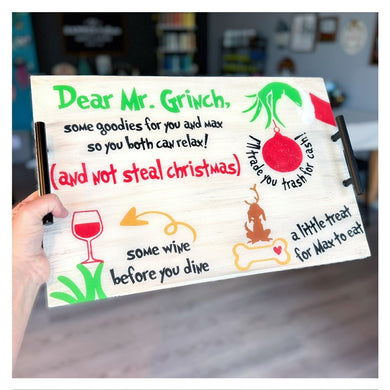 Dear Mr. Grinch,
some goodies for you and max
so you both can relax!
(and not steal christmas)
I'll trade you trash for cash!
some wine
before you dine
a little treat
for Max to eat